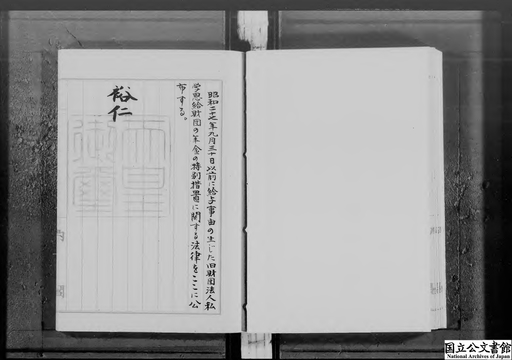 昭和二十七年九月三十日以前に給与事由の生じた旧財団法人私
学恩給財団の年金の特別措置に関する法律をここに公
布する。
裕仁
天皇
御璽
国立公文書館
National Archives of Japan